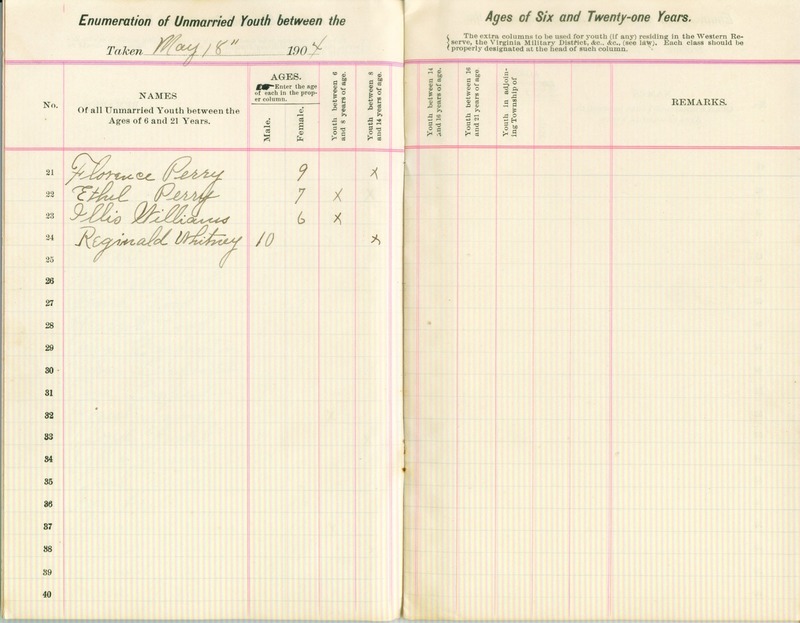 Enumeration of Unmarried Youth between the
Taken May 18" 1904
No.
NAMES
Of all Unmarried Youth between the
Ages of 6 and 21 Years.
AGES.
Enter the age
of each in the prop-
er column.
Male.
Female.
Youth between 6
and 8 years of age.
Youth between 8
and 14 years of age.
21 Florence Perry 9 x
22 Ethel Perry 7 x
23 Illis Williams 6 x
24 Reginald Whitney 10 x
25
26
27
28
29
30
31
32
33
34
35
36
37
38
39
40
Ages of Six and Twenty-one Years.
The extra columns to be used for youth (if any) residing in the Western Re-
serve, the Virginia Military District, &c., &c., (see law). Each class should be
properly designated at the head of such column.
Youth between 14
and 16 years of age.
Youth between 16
and 21 years of age
Youth in adjoin-
ing Township of
REMARKS.